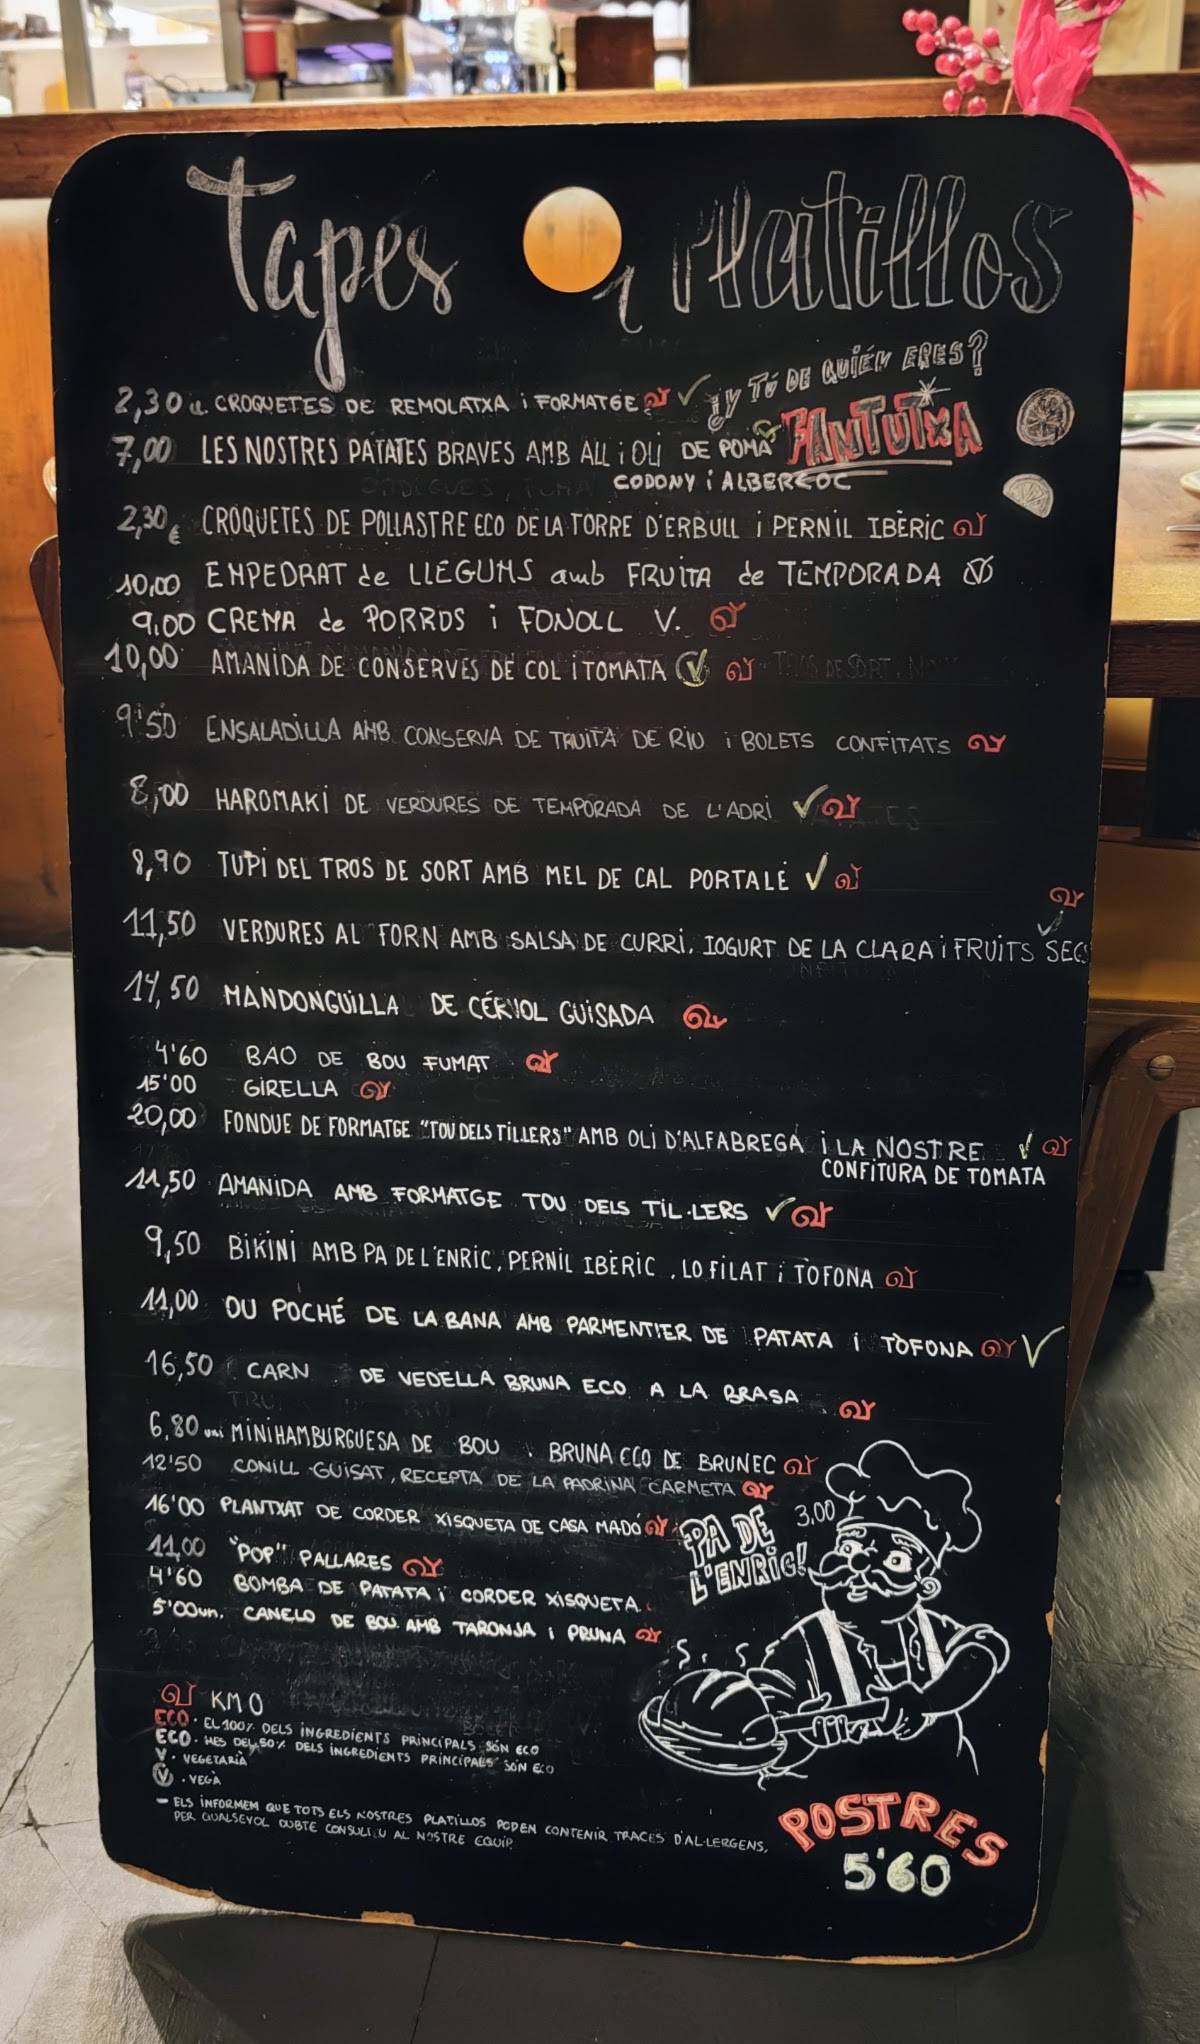 Tapes i Platillos
¡¡Y TÚ DE QUIÉN ERES?
FANTUTXA
2,30 u. CROQUETES DE REMOLATXA i FORMATGE ✓
7,00 LES NOSTRES PATATES BRAVES AMB ALL i OLI DE POMA
CODONY i ALBERCOC
2,30€ CROQUETES DE POLLASTRE ECO DE LA TORRE D'ERBULL i PERNIL IBÈRIC
10,00 EMPEDRAT de LLEGUMS amb FRUITA de TEMPORADA Ⓥ
9,00 CREMA de PORROS i FONOLL V.
10,00 AMANIDA DE CONSERVES DE COL i TOMATA Ⓥ
9'50 ENSALADILLA AMB CONSERVA DE TRUITA DE RIU i BOLETS CONFITATS
8,00 HAROMAKI DE VERDURES DE TEMPORADA DE L'ADRI ✓
8,90 TUPÍ DEL TROS DE SORT AMB MEL DE CAL PORTALÉ ✓
11,50 VERDURES AL FORN AMB SALSA DE CURRI, IOGURT DE LA CLARA i FRUITS SECS ✓
14,50 MANDONGUILLA DE CÉRVOL GUISADA
4'60 BAO DE BOU FUMAT
15'00 GIRELLA
20,00 FONDUE DE FORMATGE "TOU DELS TILLERS" AMB OLI D'ALFABREGA i LA NOSTRE ✓
CONFITURA DE TOMATA
11,50 AMANIDA AMB FORMATGE TOU DELS TIL·LERS ✓
9,50 BIKINI AMB PA DE L'ENRIC, PERNIL IBÈRIC, LO FILAT i TÒFONA
11,00 OU POCHÉ DE LA BANA AMB PARMENTIER DE PATATA I TÒFONA ✓
16,50 CARN DE VEDELLA BRUNA ECO A LA BRASA
6,80 uni MINIHAMBURGUESA DE BOU BRUNA ECO DE BRUNEC
12'50 CONILL GUISAT, RECEPTA DE LA PADRINA CARMETA
16'00 PLANTXAT DE CORDER XISQUETA DE CASA MADÓ
11,00 "POP" PALLARES
4'60 BOMBA DE PATATA i CORDER XISQUETA
5'00un. CANELO DE BOU AMB TARONJA i PRUNA
PA DE 3,00
L'ENRIC!
KM 0
ECO · EL 100% DELS INGREDIENTS PRINCIPALS SÓN ECO
ECO · MES DEL 50% DELS INGREDIENTS PRINCIPALS SÓN ECO
V · VEGETARIÀ
Ⓥ · VEGÀ
- ELS INFORMEM QUE TOTS ELS NOSTRES PLATILLOS PODEN CONTENIR TRACES D'AL·LERGENS,
PER QUALSEVOL DUBTE CONSULTIU AL NOSTRE EQUIP.
POSTRES
5'60